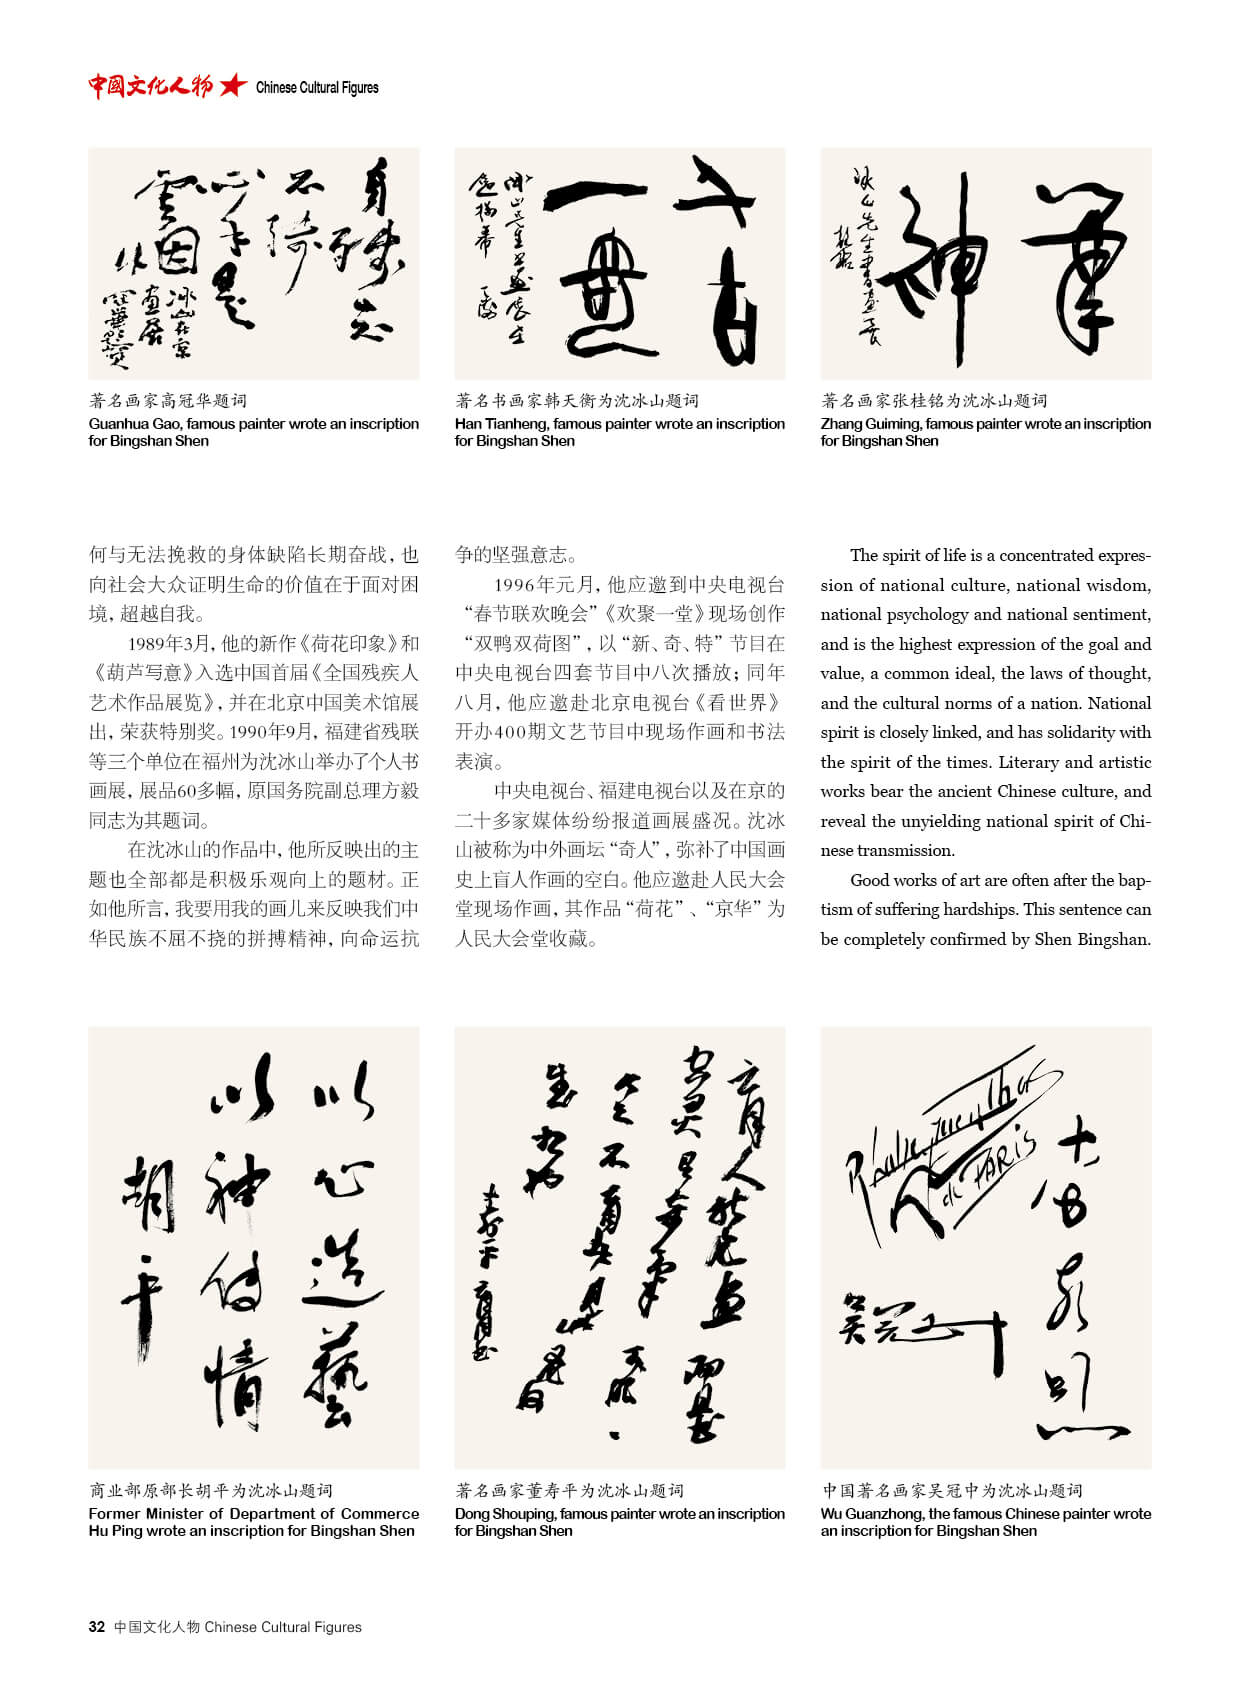 中國文化人物 ★ Chinese Cultural Figures
身残志
不残
云烟
冰山在京
画展
一画
冰山先生
神
笔
冰山先生書畫
著名画家高冠华题词
Guanhua Gao, famous painter wrote an inscription
for Bingshan Shen
著名书画家韩天衡为沈冰山题词
Han Tianheng, famous painter wrote an inscription
for Bingshan Shen
著名画家张桂铭为沈冰山题词
Zhang Guiming, famous painter wrote an inscription
for Bingshan Shen
何与无法挽救的身体缺陷长期奋战，也
向社会大众证明生命的价值在于面对困
境，超越自我。
1989年3月，他的新作《荷花印象》和
《葫芦写意》入选中国首届《全国残疾人
艺术作品展览》，并在北京中国美术馆展
出，荣获特别奖。1990年9月，福建省残联
等三个单位在福州为沈冰山举办了个人书
画展，展品60多幅，原国务院副总理方毅
同志为其题词。
在沈冰山的作品中，他所反映出的主
题也全部都是积极乐观向上的题材。正
如他所言，我要用我的画儿来反映我们中
华民族不屈不挠的拼搏精神，向命运抗
争的坚强意志。
1996年元月，他应邀到中央电视台
“春节联欢晚会”《欢聚一堂》现场创作
“双鸭双荷图”，以“新、奇、特”节目在
中央电视台四套节目中八次播放；同年
八月，他应邀赴北京电视台《看世界》
开办400期文艺节目中现场作画和书法
表演。
中央电视台、福建电视台以及在京的
二十多家媒体纷纷报道画展盛况。沈冰
山被称为中外画坛“奇人”，弥补了中国画
史上盲人作画的空白。他应邀赴人民大会
堂现场作画，其作品“荷花”、“京华”为
人民大会堂收藏。
The spirit of life is a concentrated expres-
sion of national culture, national wisdom,
national psychology and national sentiment,
and is the highest expression of the goal and
value, a common ideal, the laws of thought,
and the cultural norms of a nation. National
spirit is closely linked, and has solidarity with
the spirit of the times. Literary and artistic
works bear the ancient Chinese culture, and
reveal the unyielding national spirit of Chi-
nese transmission.
Good works of art are often after the bap-
tism of suffering hardships. This sentence can
be completely confirmed by Shen Bingshan.
以心造藝
以神传情
胡平
盲人能作画
董寿平
PARIS
吴冠中
商业部原部长胡平为沈冰山题词
Former Minister of Department of Commerce
Hu Ping wrote an inscription for Bingshan Shen
著名画家董寿平为沈冰山题词
Dong Shouping, famous painter wrote an inscription
for Bingshan Shen
中国著名画家吴冠中为沈冰山题词
Wu Guanzhong, the famous Chinese painter wrote
an inscription for Bingshan Shen
32 中国文化人物 Chinese Cultural Figures